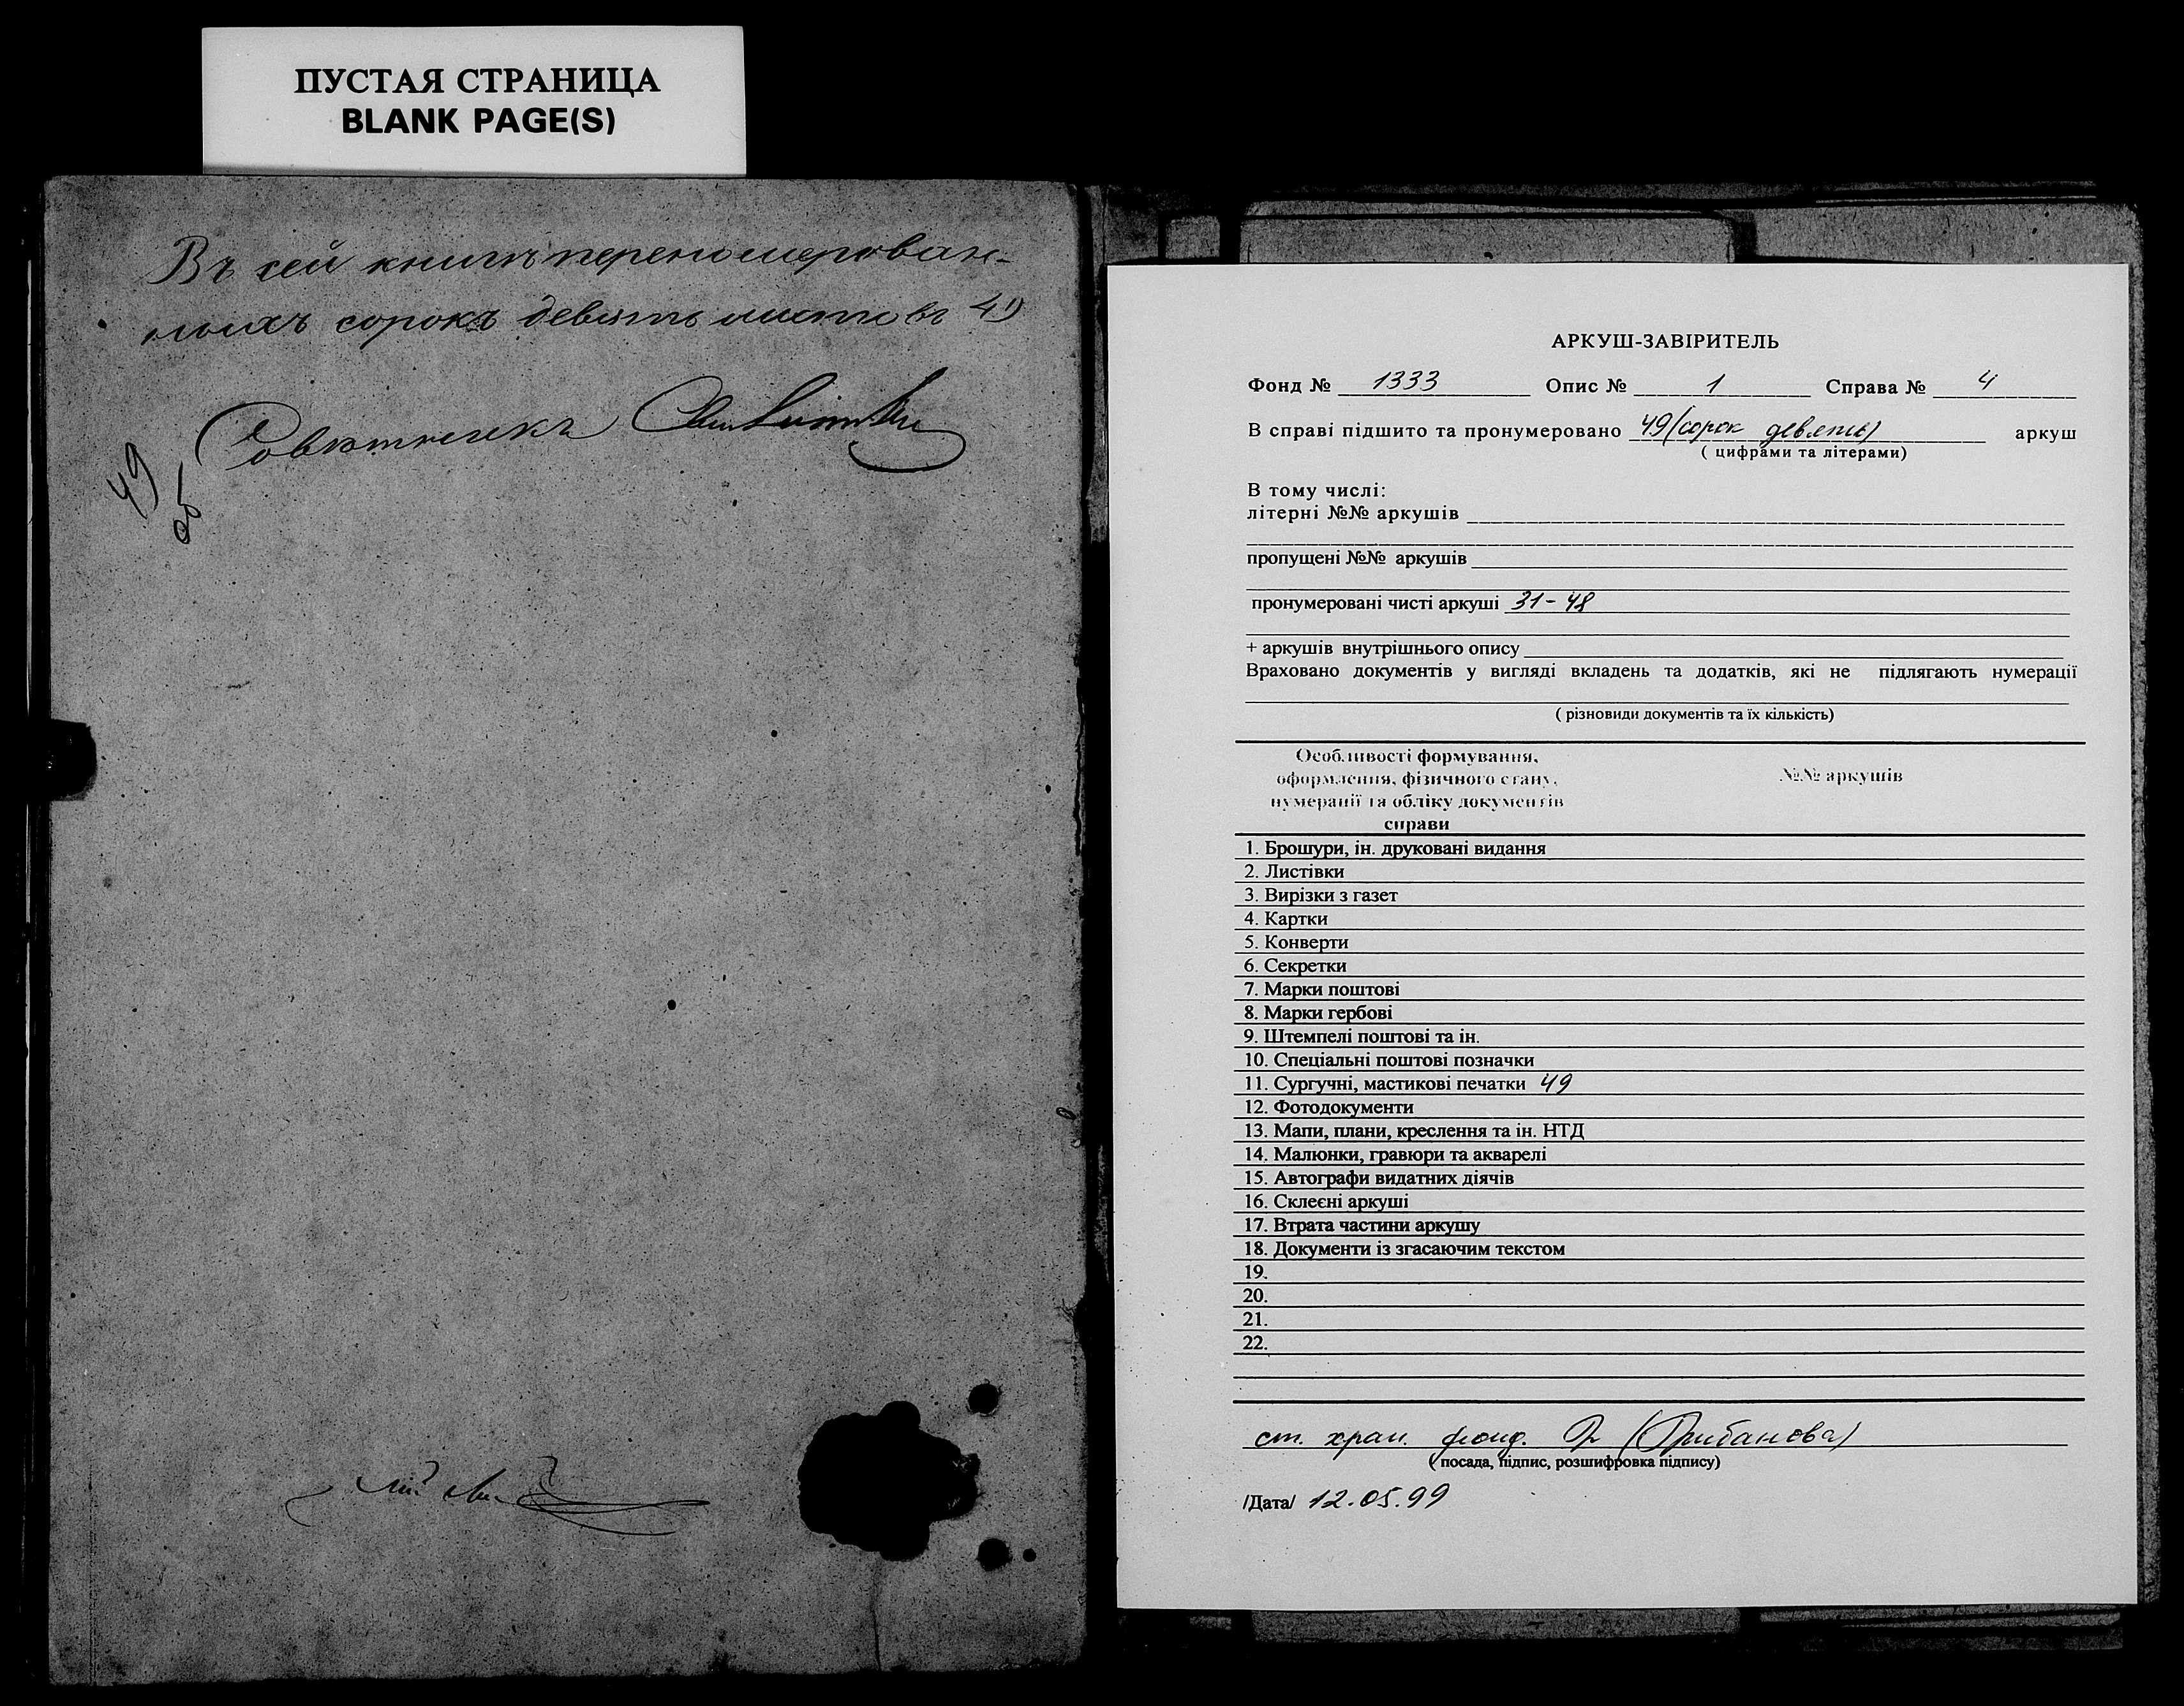 ПУСТАЯ СТРАНИЦА
BLANK PAGE(S)
Въ сей книгѣ перенумерован-
ныхъ сорокъ девять листовъ 49
Совѣтникъ
49
об
АРКУШ-ЗАВІРИТЕЛЬ
Фонд № 1333 Опис № 1 Справа № 4
В справі підшито та пронумеровано 49 (сорок девять) аркуш
( цифрами та літерами)
В тому числі:
літерні №№ аркушів
пропущені №№ аркушів
пронумеровані чисті аркуші 31-48
+ аркушів внутрішнього опису
Враховано документів у вигляді вкладень та додатків, які не підлягають нумерації
( різновиди документів та їх кількість)
Особливості формування,
оформлення, фізичного стану,
нумерації та обліку документів
справи
№№ аркушів
1. Брошури, ін. друковані видання
2. Листівки
3. Вирізки з газет
4. Картки
5. Конверти
6. Секретки
7. Марки поштові
8. Марки гербові
9. Штемпелі поштові та ін.
10. Спеціальні поштові позначки
11. Сургучні, мастикові печатки 49
12. Фотодокументи
13. Мапи, плани, креслення та ін. НТД
14. Малюнки, гравюри та акварелі
15. Автографи видатних діячів
16. Склеєні аркуші
17. Втрата частини аркушу
18. Документи із згасаючим текстом
19.
20.
21.
22.
ст. хран. фонд. (Грибанова)
( посада, підпис, розшифровка підпису)
/Дата/ 12.05.99